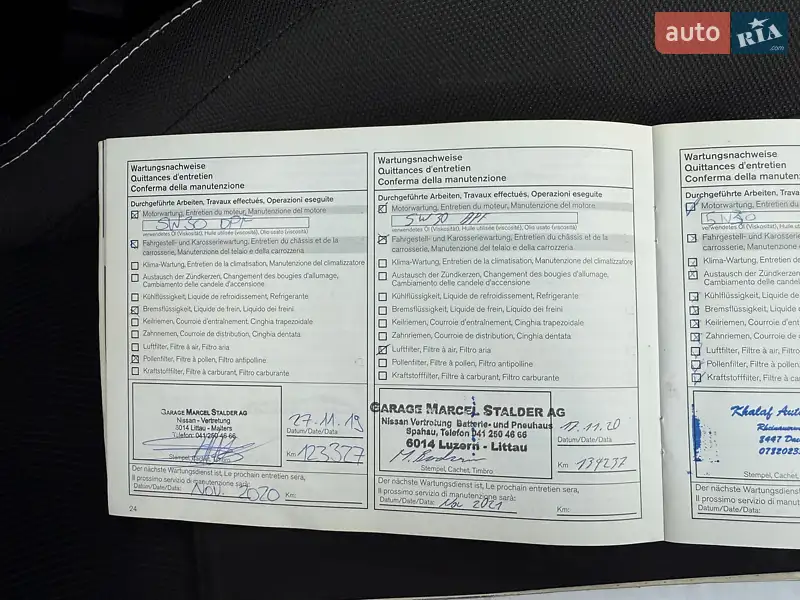 auto RIA .com
Wartungsnachweise
Quittances d'entretien
Conferma della manutenzione
Durchgeführte Arbeiten, Travaux effectués, Operazioni eseguite
Motorwartung, Entretien du moteur, Manutenzione del motore
5W30 DPF
verwendetes Öl (Viskosität), Huile utilisée (viscosité), Olio usato (viscosità)
Fahrgestell- und Karosseriewartung, Entretien du châssis et de la
carrosserie, Manutenzione del telaio e della carrozzeria
Klima-Wartung, Entretien de la climatisation, Manutenzione del climatizzatore
Austausch der Zündkerzen, Changement des bougies d'allumage,
Cambiamento delle candele d'accensione
Kühlflüssigkeit, Liquide de refroidissement, Refrigerante
Bremsflüssigkeit, Liquide de frein, Liquido dei freini
Keilriemen, Courroie d'entraînement, Cinghia trapezoidale
Zahnriemen, Courroie de distribution, Cinghia dentata
Luftfilter, Filtre à air, Filtro aria
Pollenfilter, Filtre à pollen, Filtro antipolline
Kraftstofffilter, Filtre à carburant, Filtro carburante
GARAGE MARCEL STALDER AG
Nissan - Vertretung
6014 Littau - Malters
Telefon 041 250 46 66
Stempel, Cachet, Timbro
27.11.19
Datum/Date/Data:
Km: 123327
Der nächste Wartungsdienst ist, Le prochain entretien sera,
Il prossimo servizio di manutenzione sarà:
Datum/Date/Data: Nov. 2020 Km:
24
Wartungsnachweise
Quittances d'entretien
Conferma della manutenzione
Durchgeführte Arbeiten, Travaux effectués, Operazioni eseguite
Motorwartung, Entretien du moteur, Manutenzione del motore
5W30 DPF
verwendetes Öl (Viskosität), Huile utilisée (viscosité), Olio usato (viscosità)
Fahrgestell- und Karosseriewartung, Entretien du châssis et de la
carrosserie, Manutenzione del telaio e della carrozzeria
Klima-Wartung, Entretien de la climatisation, Manutenzione del climatizzatore
Austausch der Zündkerzen, Changement des bougies d'allumage,
Cambiamento delle candele d'accensione
Kühlflüssigkeit, Liquide de refroidissement, Refrigerante
Bremsflüssigkeit, Liquide de frein, Liquido dei freini
Keilriemen, Courroie d'entraînement, Cinghia trapezoidale
Zahnriemen, Courroie de distribution, Cinghia dentata
Luftfilter, Filtre à air, Filtro aria
Pollenfilter, Filtre à pollen, Filtro antipolline
Kraftstofffilter, Filtre à carburant, Filtro carburante
GARAGE MARCEL STALDER AG
Nissan Vertretung Batterie- und Pneuhaus
Spahau, Telefon 041 250 46 66
6014 Luzern - Littau
Stempel, Cachet, Timbro
17.11.20
Datum/Date/Data:
Km: 134237
Der nächste Wartungsdienst ist, Le prochain entretien sera,
Il prossimo servizio di manutenzione sarà:
Datum/Date/Data: Nov 2021 Km:
Wartungsnachweise
Quittances d'entretien
Conferma della manuten
Durchgeführte Arbeiten, Trava
Motorwartung, Entretien du m
5W30
verwendetes Öl (Viskosität), Huile
Fahrgestell- und Karosseriew
carrosserie, Manutenzione de
Klima-Wartung, Entretien de
Austausch der Zündkerzen,
Cambiamento delle candele d
Kühlflüssigkeit, Liquide de r
Bremsflüssigkeit, Liquide d
Keilriemen, Courroie d'entra
Zahnriemen, Courroie de
Luftfilter, Filtre à air, Filtro
Pollenfilter, Filtre à pollen
Kraftstofffilter, Filtre à ca
Khalaf Aut
8447 Dac
Stempel, Cachet,
Der nächste Wartungsdienst
Il prossimo servizio di manu
Datum/Date/Data: